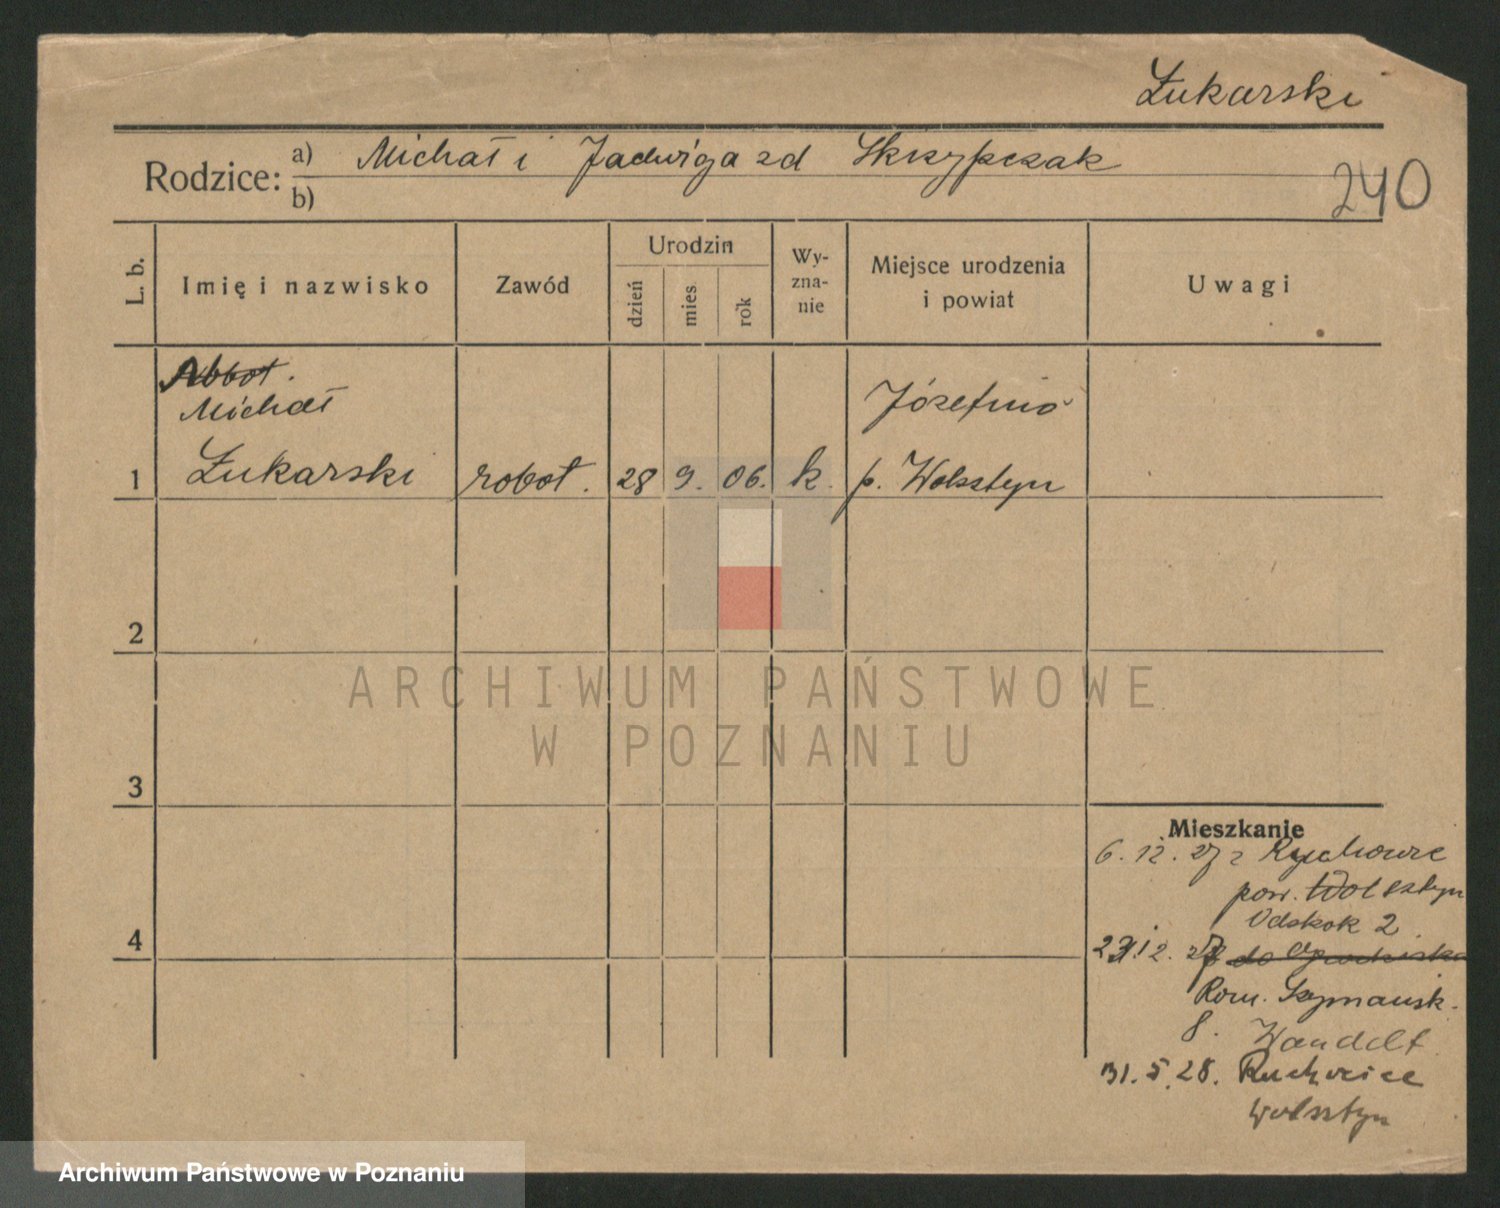 Łukarski
Rodzice: a) Michał i Jadwiga zd Skrzypczak
b)
240
L. b.
Imię i nazwisko
Zawód
Urodzin
dzień
mies
rok
Wy-
zna-
nie
Miejsce urodzenia
i powiat
Uwagi
Robot.
Michał
Józefinó
1 Łukarski robot. 28 9. 06. k. p. Wolsztyn
2
ARCHIWUM PAŃSTWOWE
W POZNANIU
3
Mieszkanie
6. 12. 27 z
pow. Wolsztyn
Odskok 2
4
12. 27 do Grodziska
Rom. Szymańsk.
8. Wandelt
31. 5. 28.
Wolsztyn
Archiwum Państwowe w Poznaniu